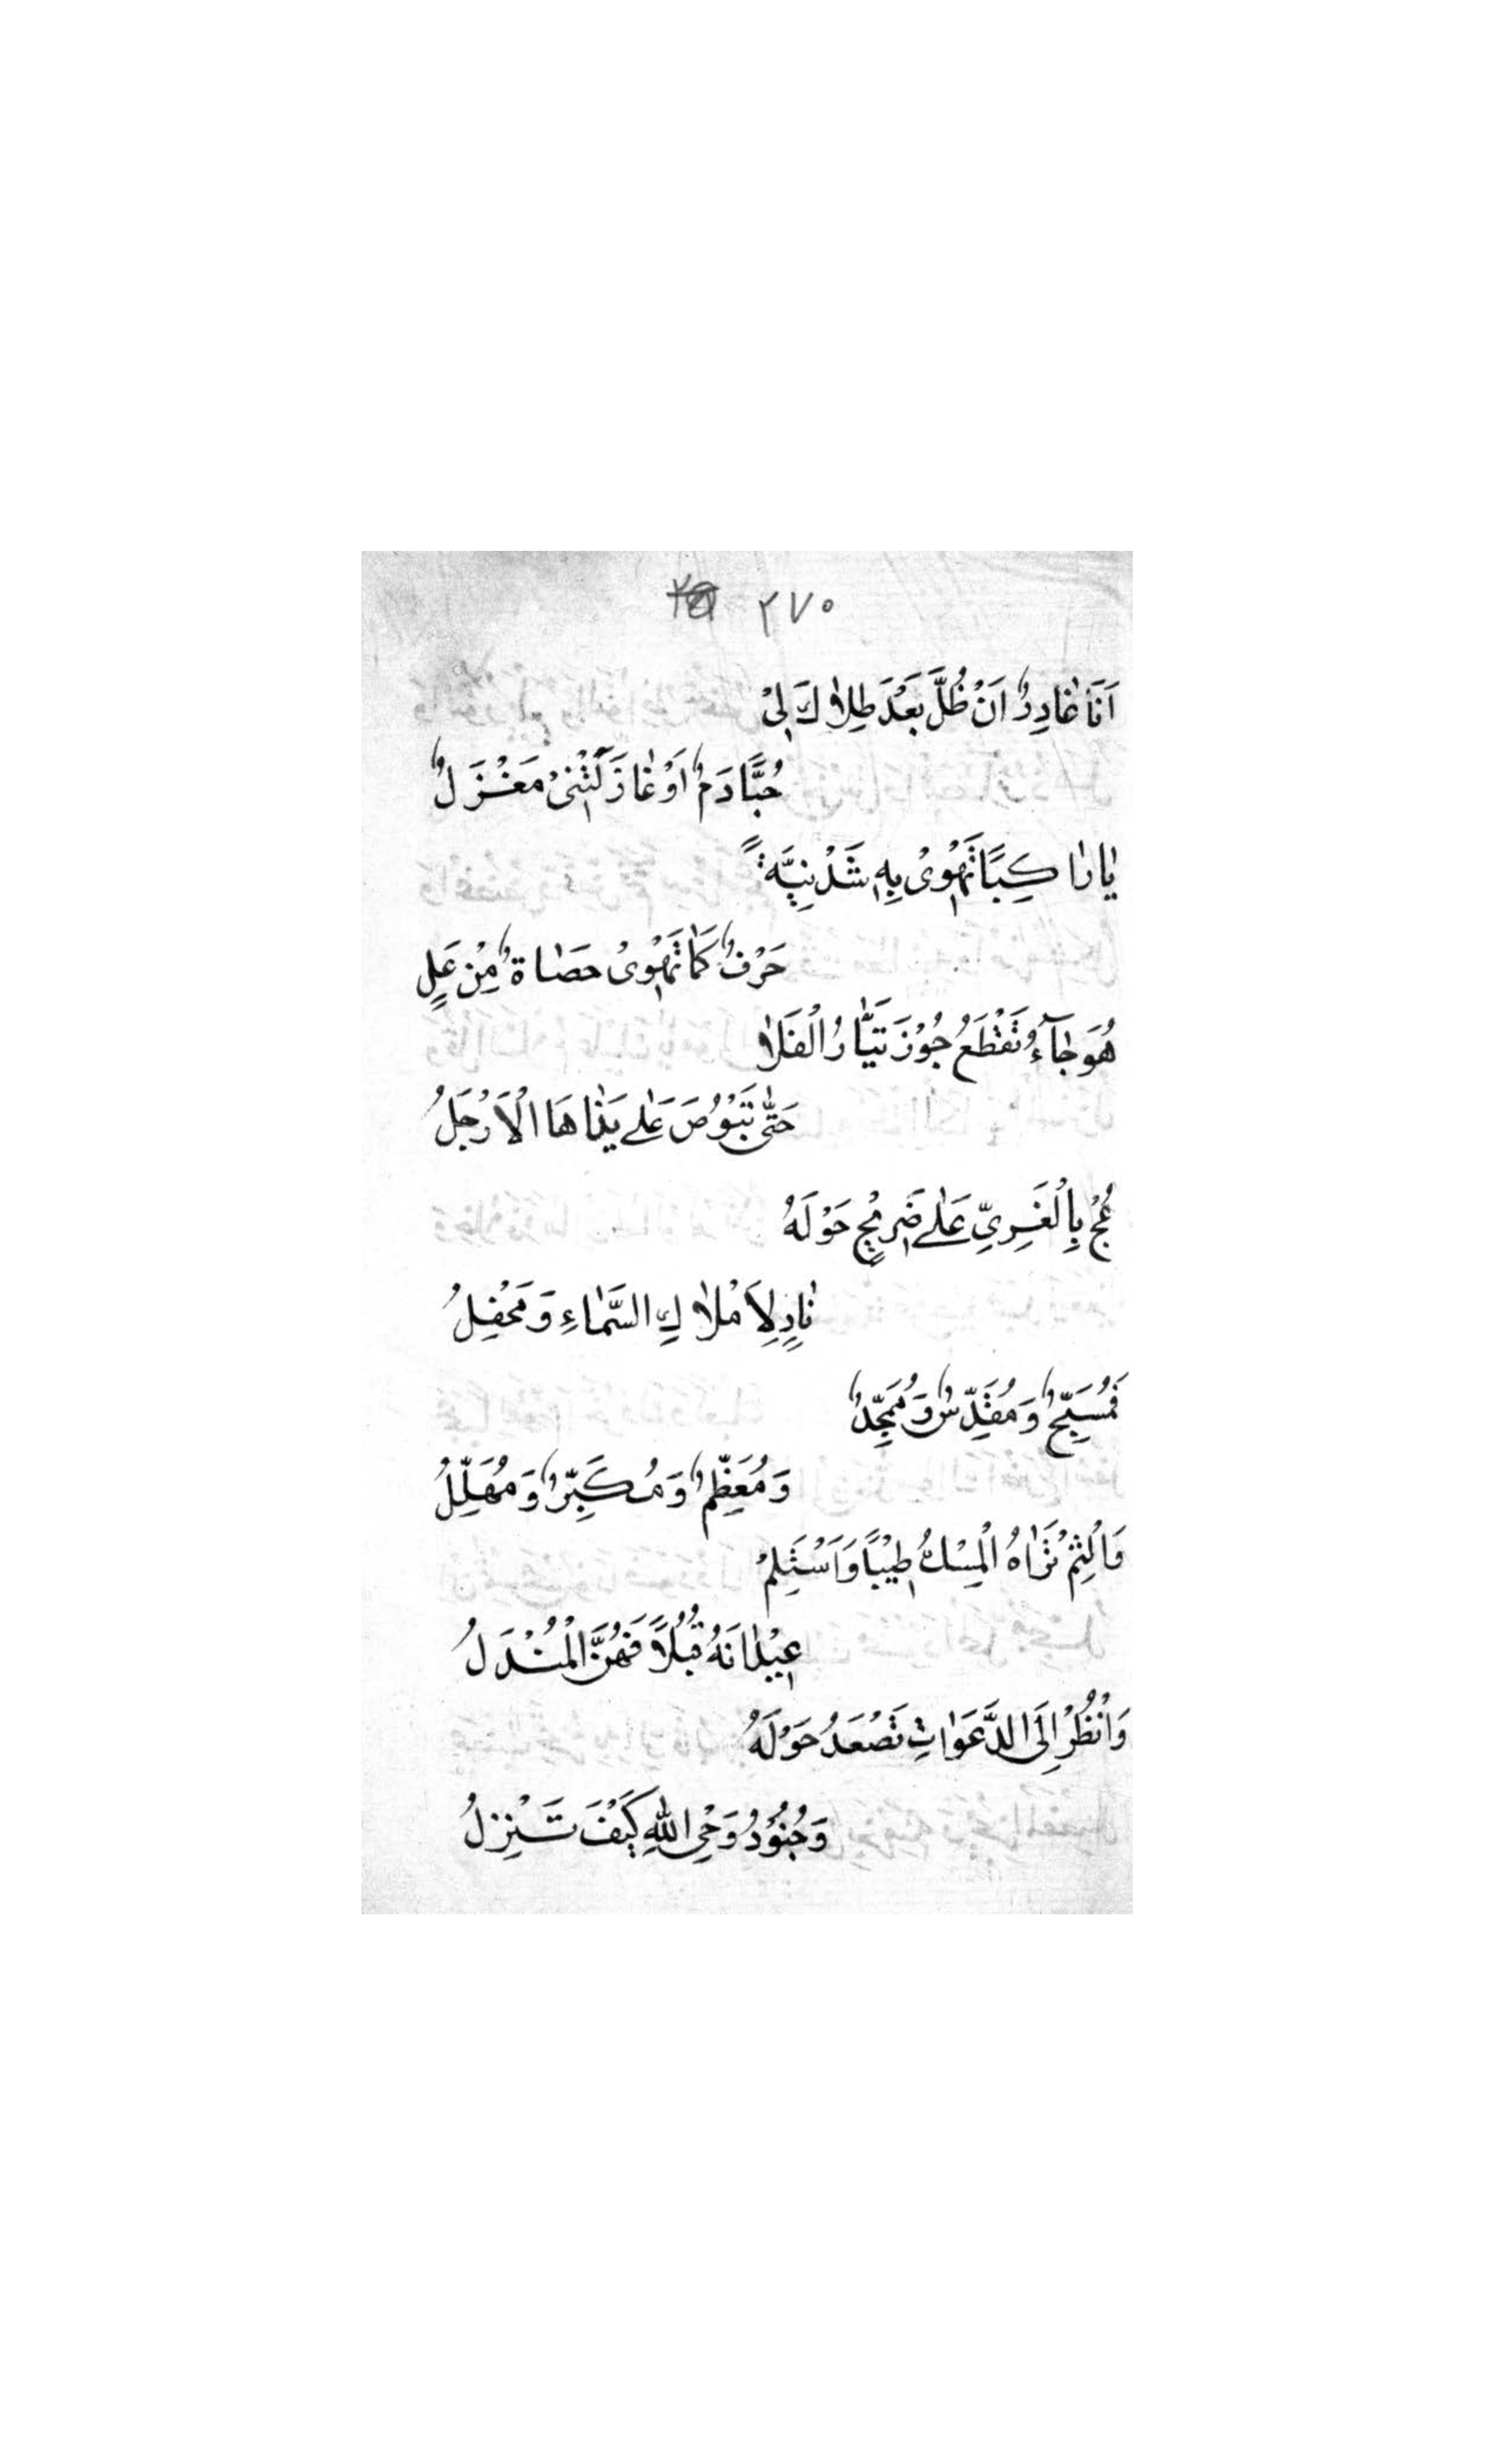 ٢٧٠
اَنَا غَادِرٌ اَنْ ظُلَّ بَعْدَ طِلَاكَ لِيْ
حُبًّا دَمٌ اَوْ غَازَلَتْنِيْ مَغْزَلُ
يَا رَاكِبًا تَهْوِيْ بِهِ شَدْنِيَّةٌ
حَرْفٌ كَمَا تَهْوِيْ حَصَاةٌ مِنْ عَلٍ
هُوَجَآءُ تَقْطَعُ جُوْزَ تَيَّارُ الْفَلَا
حَتّٰى تَبُوْصَ عَلٰى يَدَاهَا الْاَرْجَلُ
عُجْ بِالْغَرِيِّ عَلٰى ضَرِيْحٍ حَوْلَهُ
نَادٍ لِاَمْلَاكِ السَّمَاءِ وَمَحْفِلُ
فَمُسَبِّحٌ وَمُقَدِّسٌ وَمُمَجِّدٌ
وَمُعَظِّمٌ وَمُكَبِّرٌ وَمُهَلِّلُ
وَالْثِمْ ثَرَاهُ الْمِسْكُ طِيْبًا وَاسْتَلِمْ
عِيْدَانَهُ قُبُلًا فَهُنَّ الْمُنْدَلُ
وَانْظُرْ اِلَى الدَّعَوَاتِ تَصْعَدُ حَوْلَهُ
وَجُنُوْدُ وَحْيِ اللّٰهِ كَيْفَ تَنْزِلُ